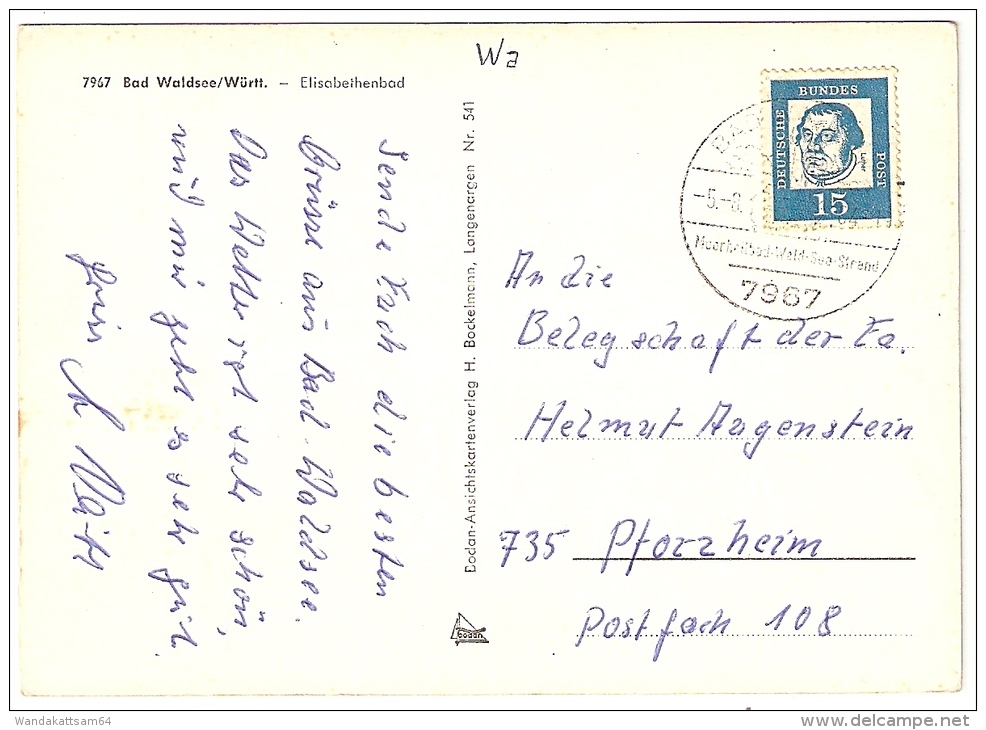 Wa
7967 Bad Waldsee/Württ. – Elisabethenbad
Sende Euch die besten
Grüsse aus Bad-Waldsee.
Das Wetter ist sehr schön,
und mir geht es sehr gut.
Bodan-Ansichtskartenverlag H. Bockelmann, Langenargen Nr. 541
bodan
DEUTSCHE
BUNDES
POST
15
BAD
-5.-8.
Moorheilbad-Wald-See-Strand
7967
An die
Belegschaft der Fa.
Helmut Augenstein
735 Pforzheim
Postfach 108
Wandakattsam64
www.delcampe.net